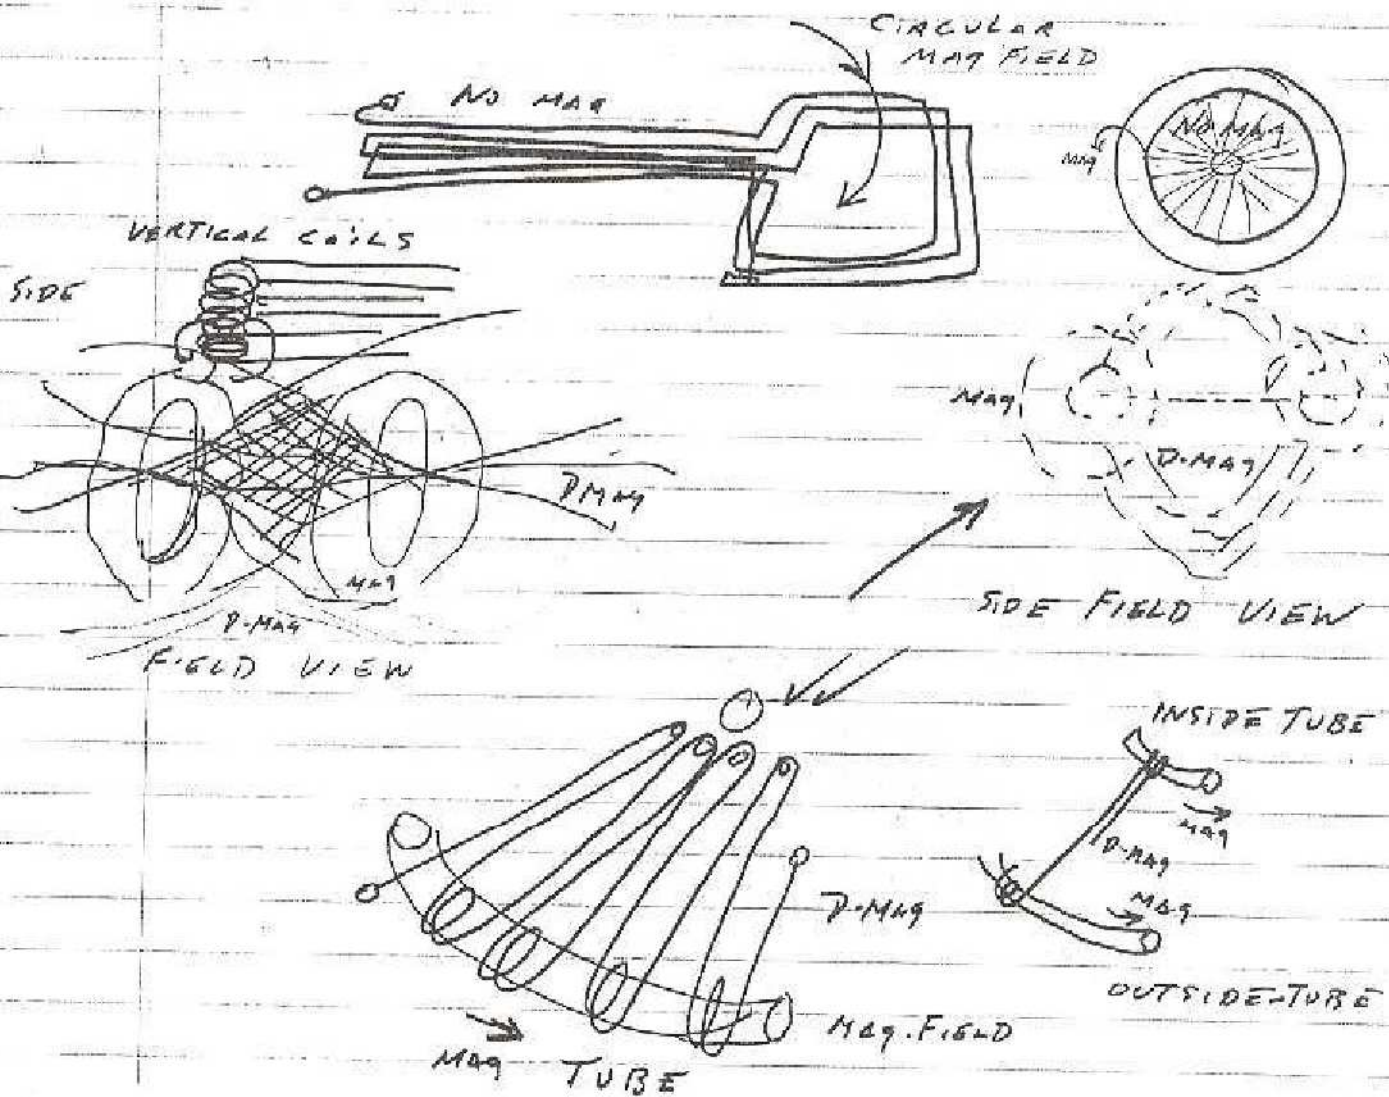 CIRCULAR
MAG FIELD
NO MAG
NO MAG
MAG
VERTICAL COILS
SIDE
MAG
D-MAG
D MAG
MAG
D-MAG
SIDE FIELD VIEW
FIELD VIEW
INSIDE TUBE
MAG
D-MAG
MAG
D-MAG
OUTSIDE-TUBE
MAG. FIELD
MAG
TUBE